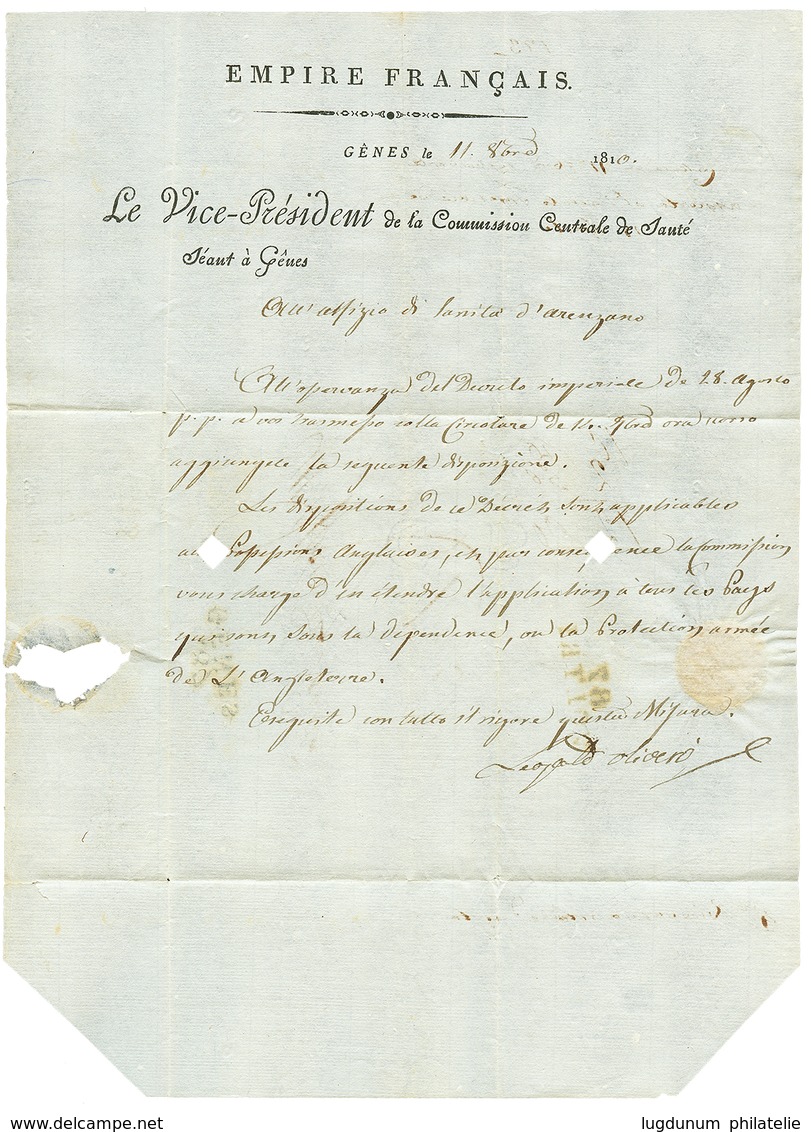 EMPIRE FRANÇAIS.
GÊNES le 11. 8bre 1810.
Le Vice-Président de la Commission Centrale de Santé
Séant à Gênes
All'uffizio di Sanità d'Arenzano
All'osservanza del Decreto imperiale de 28. Agosto
p. p. a voi trasmesso colla Circolare de 14. 7bre
aggiungete la seguente disposizione.
Les dispositions de ce Décret sont applicables
aux Possessions Anglaises, et par conséquence la Commission
vous charge d'en étendre l'application à tous les Pays
qui sont sous la dependence, ou la Protection armée
de L'Angleterre.
Eseguite con tutto il rigore questa Misura.
Leopold Oliveri
lugdunum philatelie